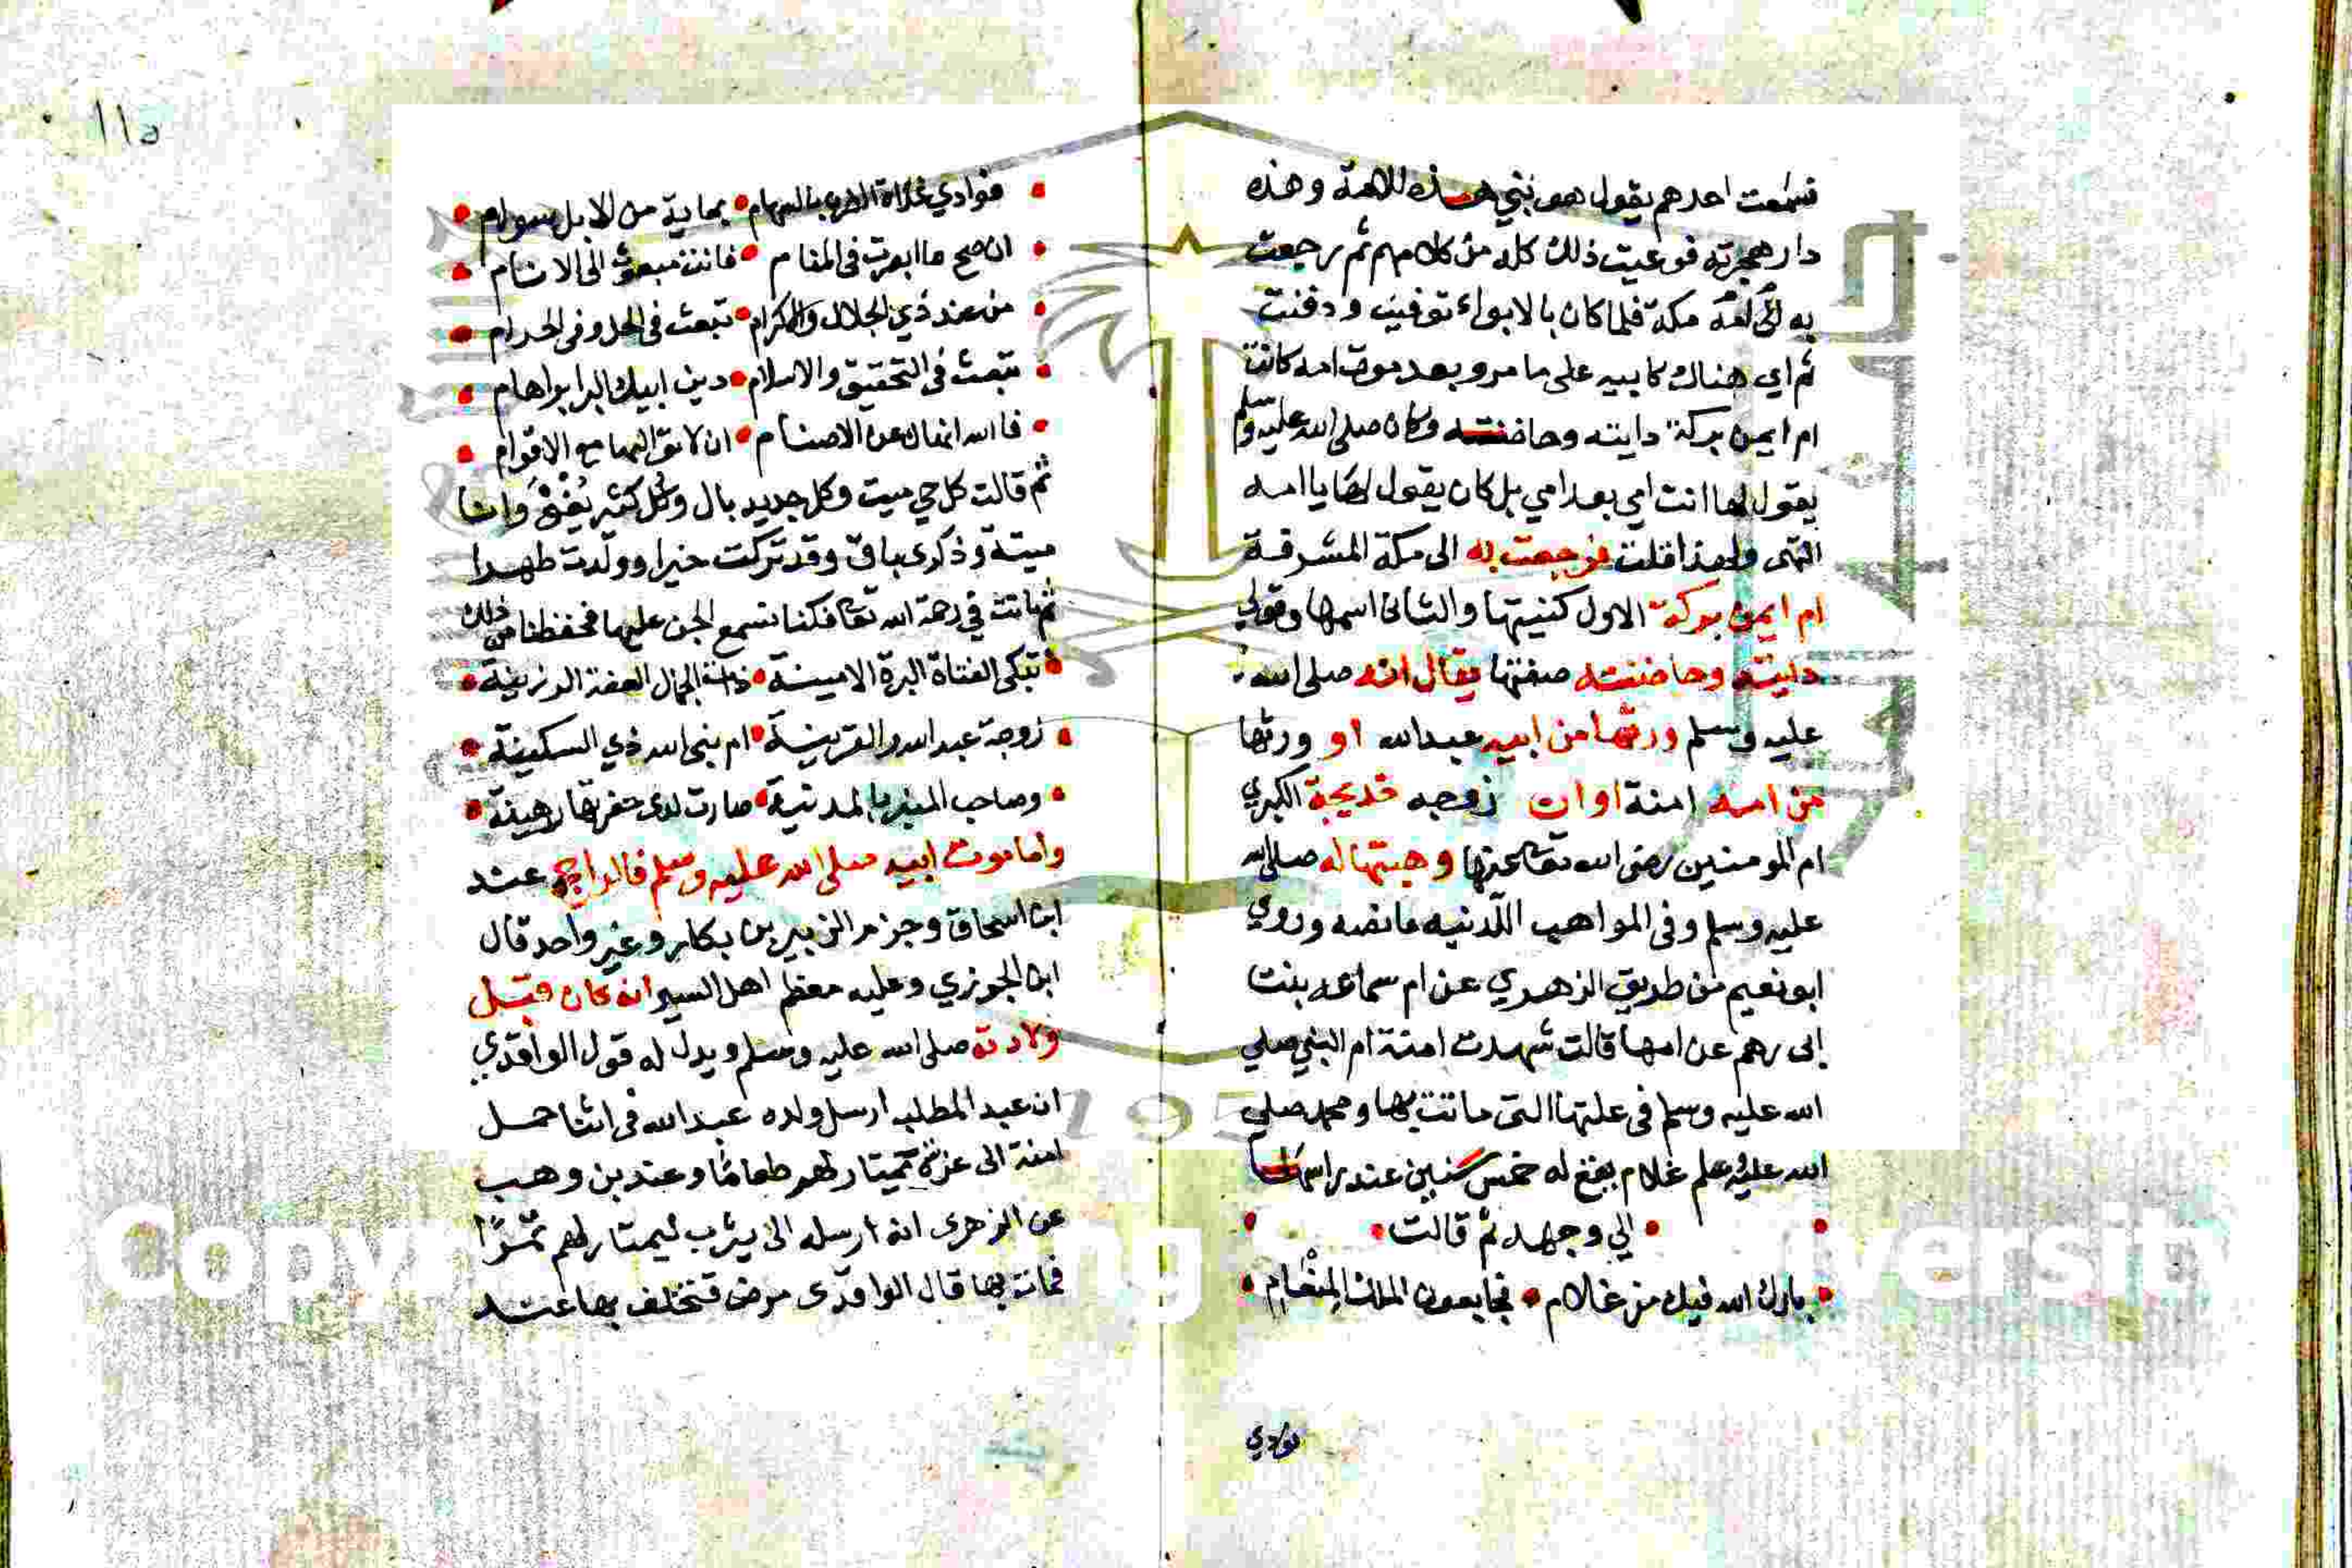 فسمعت احدهم يقول هو نبي هذه الامة وهذه
دار هجرته فوعيت ذلك كله من كلامهم ثم رجعت
به الى امه مكة فلما كان بالابواء توفيت ودفنت
ثم اي هناك كابيه على ما مر وبعد موت امه كانت
ام ايمن بركة دايته وحاضنته وكان صلى الله عليه وسلم
يقول لها انت امي بعد امي بل كان يقول لها يا امه
انتهى ولهذا قلت فرجعت به الى مكة المشرفة
ام ايمن بركة الاول كنيتها والثانى اسمها وقولي
دايته وحاضنته صفتها يقال انه صلى الله
عليه وسلم ورثها من ابيه عبدالله او ورثها
من امه امنة او ان زوجه خديجة الكبري
ام المومنين رضى الله تعا عنها وهبتها له صلى الله
عليه وسلم وفى المواهب اللدنيه ما نصه وروي
ابو نعيم من طريق الزهري عن ام سماعه بنت
ابى رهم عن امها قالت شهدت امنة ام النبي صلى
الله عليه وسلم فى علتها التى ماتت بها ومحمد صلى
الله عليه وسلم غلام يفع له خمس سنين عند راسها
الي وجهه ثم قالت
بارك الله فيك من غلام • نجا بعون الملك المنعام
فوادي
١١٥
فوادي غداة الضرب بالسهام • بماية من الابل سوام
ان صح ما ابصرت فى المنام • فانت مبعوث الى الانام
من عند ذي الجلال والاكرام • تبعث فى الحل وفى الحرام
تبعث فى التحقيق والاسلام • دين ابيك البر ابراهام
فالله انهاك عن الاصنام • ان لا تواليها مع الاقوام
ثم قالت كل حي ميت وكل جديد بال وكل كثير يفنى وانا
ميتة وذكرى باق وقد تركت خيرا وولدت طهرا
ثم ماتت في رحمة الله تعا فكنا نسمع الجن عليها فحفظنا من ذلك
تبكى الفتاة البرة الامينة • ذات الجمال العفة الرزينة
زوجة عبد الله والقرينة • ام نبى الله ذي السكينة
وصاحب المنبر بالمدينة • صارت لدى حفرتها رهينة
واما موت ابيه صلى الله عليه وسلم فالراجح عند
ابن اسحاق وجزم الزبير بن بكار وغير واحد قال
ابن الجوزي وعليه معظم اهل السير انه كان قبل
ولادته صلى الله عليه وسلم ويدل له قول الواقدي
ان عبد المطلب ارسل ولده عبد الله فى اثنا حمل
امنة الى غزة يمتار لهم طعاما وعند بن وهب
عن الزهرى انه ارسله الى يثرب ليمتار لهم تمرًا
فمات بها قال الواقدى مرض فتخلف بها عند